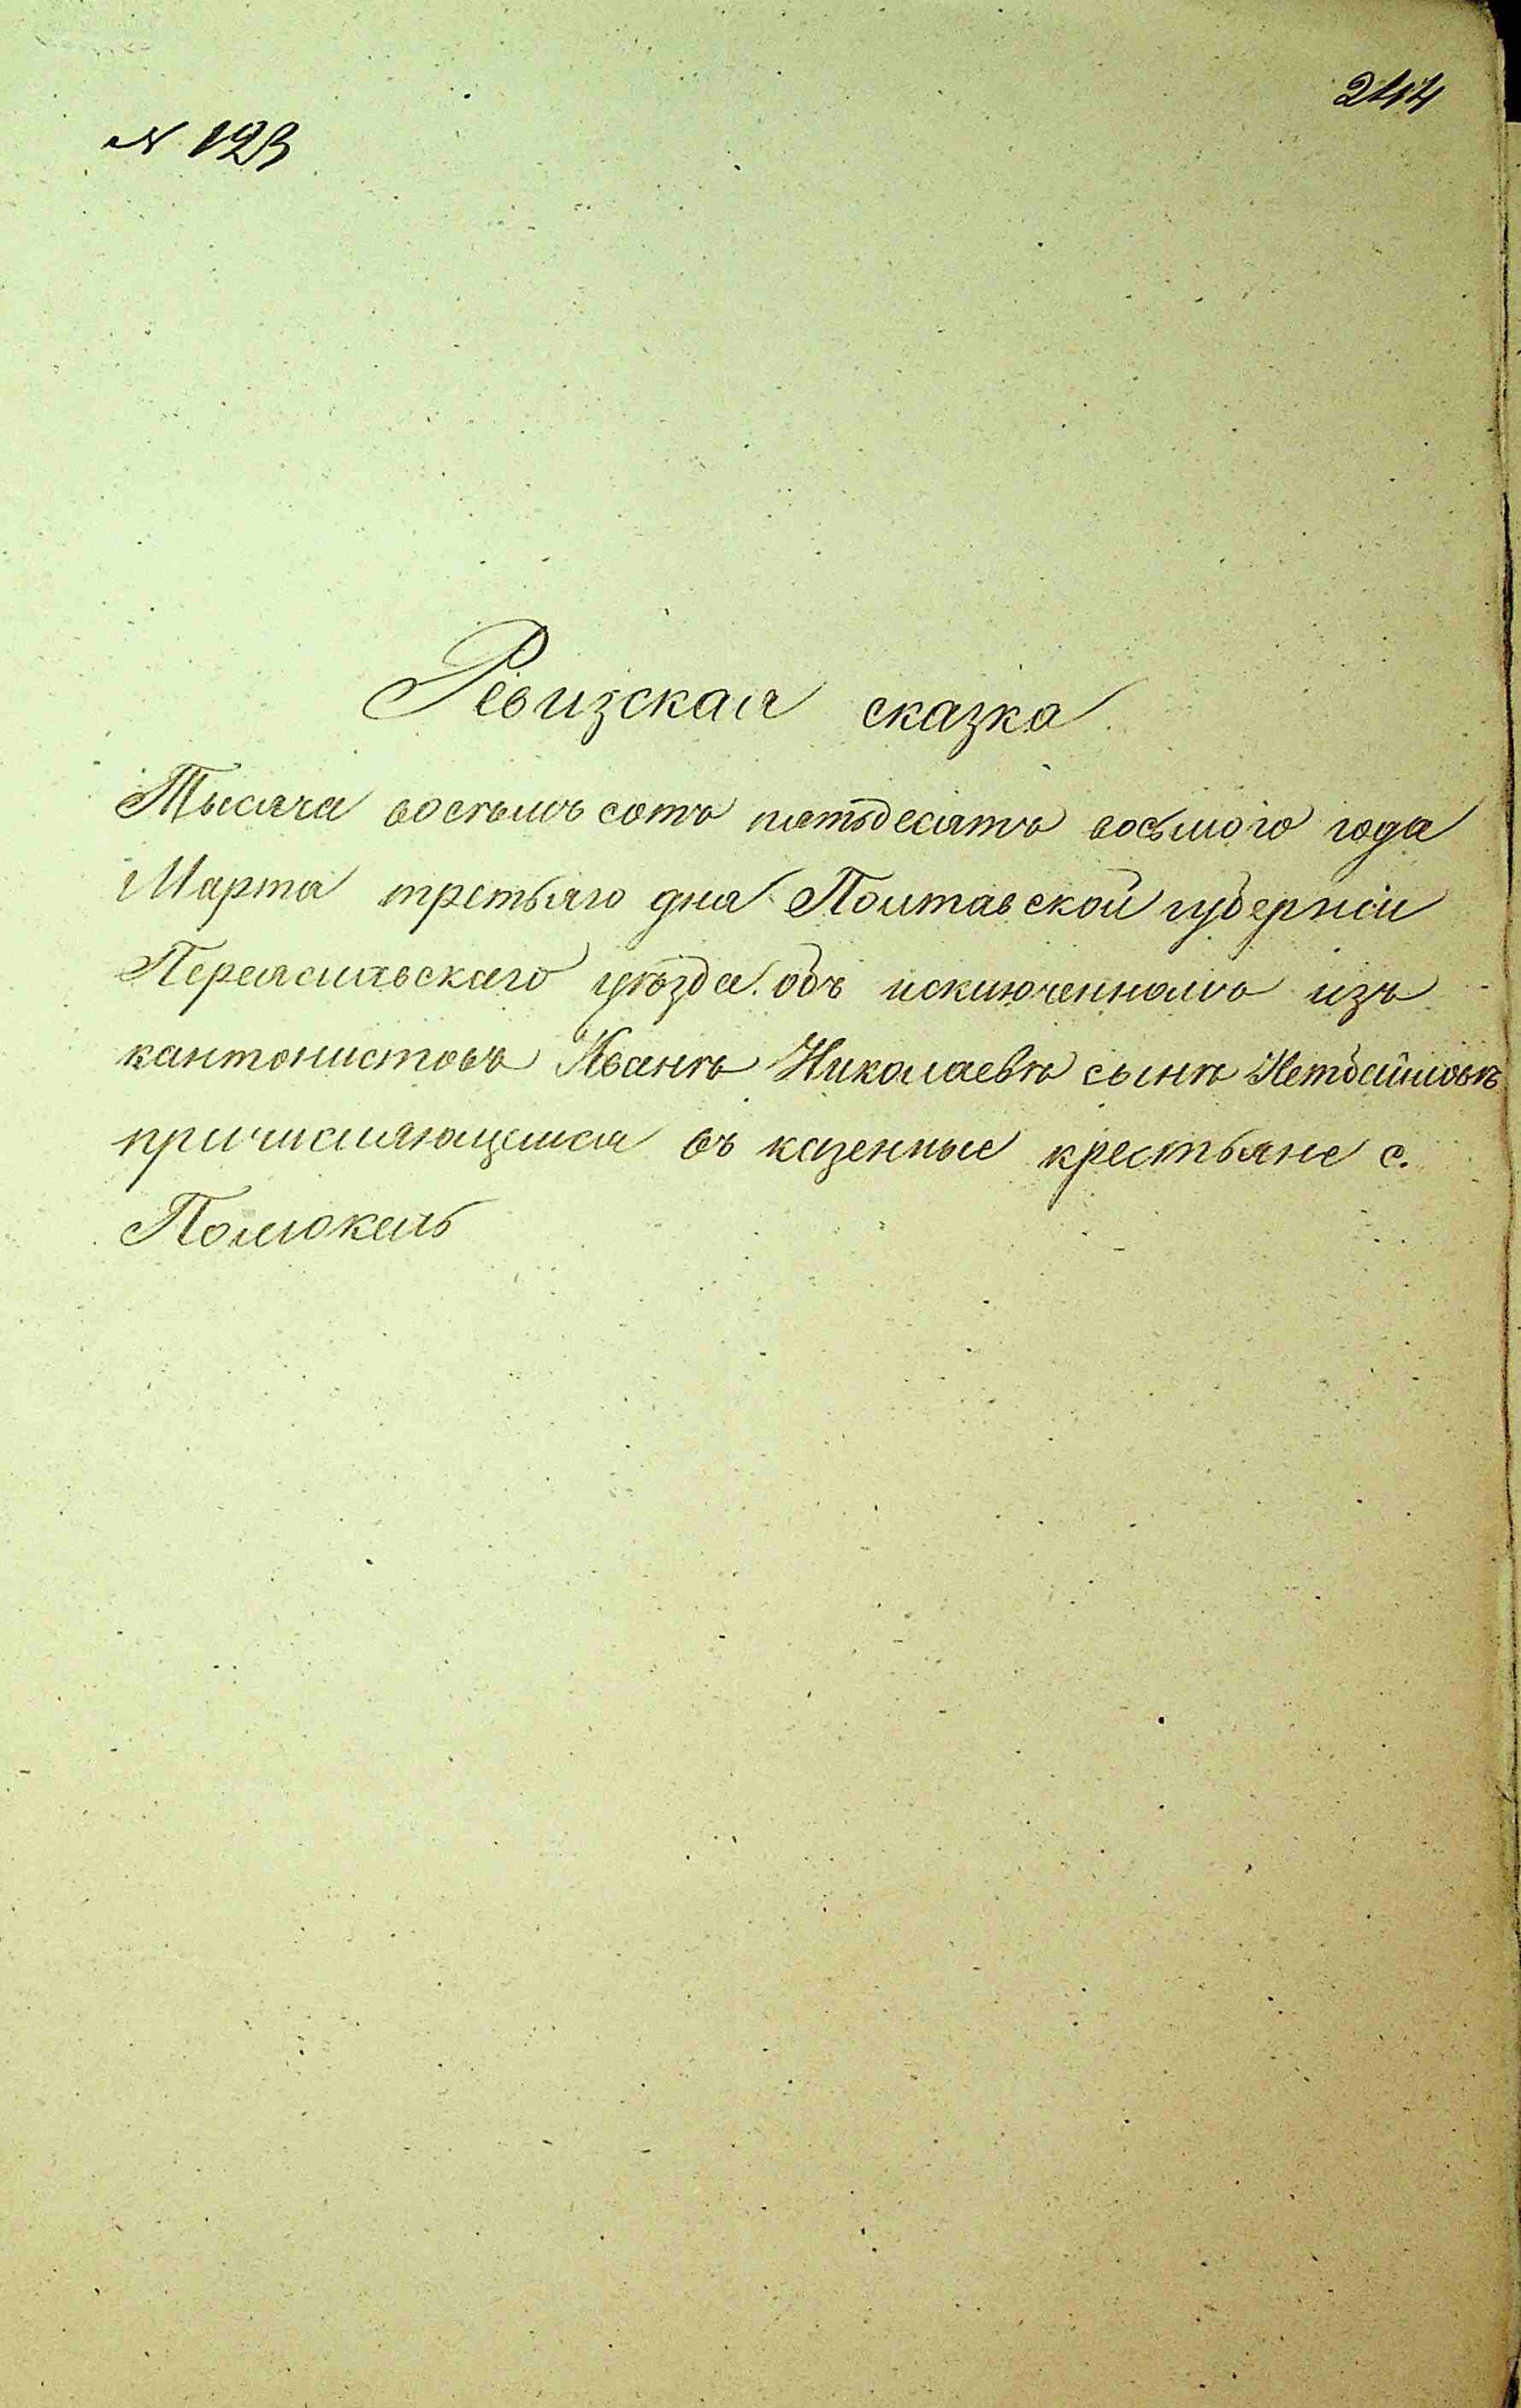 244
№ 123
Ревизская сказка
Тысяча восемь сотъ пятьдесятъ восьмого года
Марта третьяго дня Полтавской губерніи
Переяславскаго уѣзда объ исключенномъ изъ
кантонистовъ Иванѣ Николаевѣ сынѣ
причисляющемся въ казенные крестьяне с.
Помокель